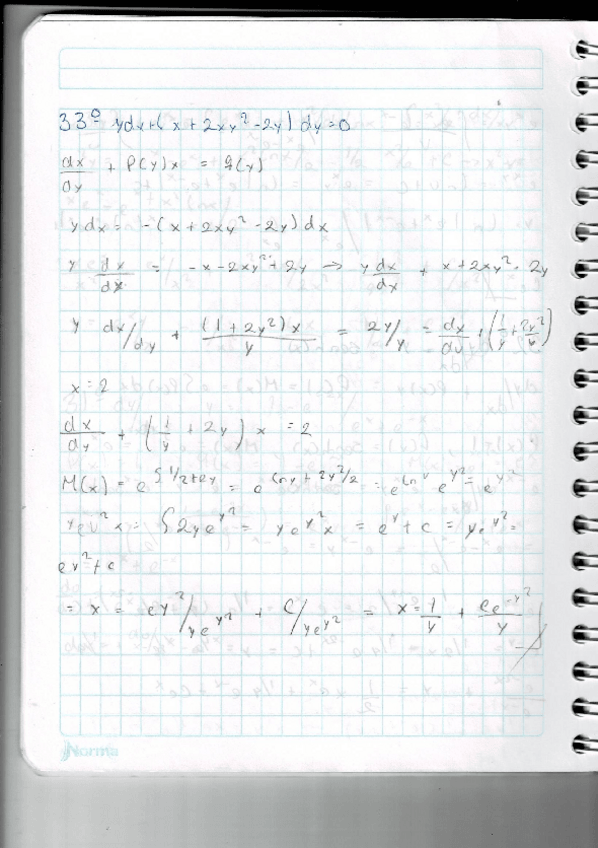 33º ydx+(x+2xy²-2y)dy=0
dx/dy + P(y)x = q(y)
ydx = -(x+2xy²-2y)dx
y dx/dx = -x-2xy²+2y → y dx/dx + x+2xy² = 2y
y dx/dy + (1+2y²)x/y = 2y/y = dx/dy + (1/y + 2y²/y)
x=2
dx/dy + (1/y + 2y) x = 2
M(x) = e^∫1/2+2y = e^(lny + 2y²/2) = e^lny e^y² = e^y²
x = ∫2ye^y² = ye^y² x = e^y + c = ye^y² =
ey²+c
= x = ey²/ye^y² + C/ye^y² = x = 1/y + Ce^-y²/y
Norma